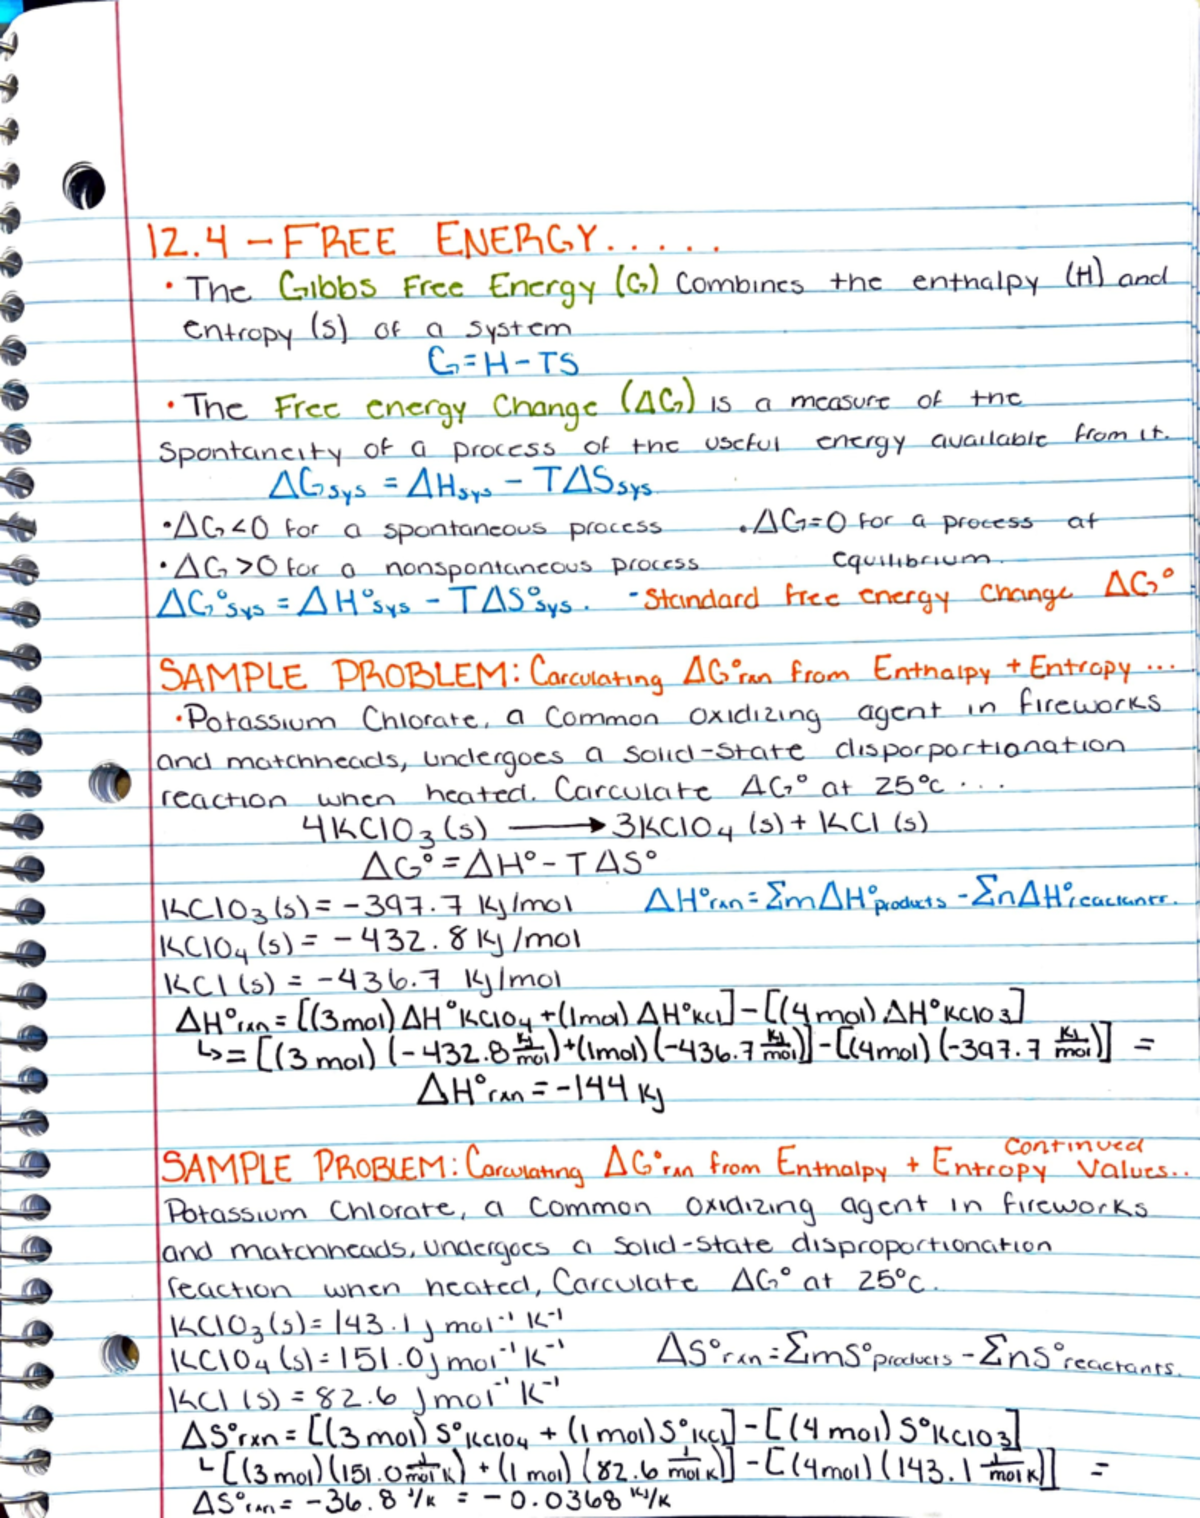 12.4 - FREE ENERGY.....
• The Gibbs Free Energy (G) combines the enthalpy (H) and
entropy (S) of a system
G = H - TS
• The Free energy Change (ΔG) is a measure of the
spontaneity of a process of the useful energy available from it.
ΔGsys = ΔHsys - TΔSsys
• ΔG < 0 for a spontaneous process • ΔG = 0 for a process at
• ΔG > 0 for a nonspontaneous process equilibrium.
ΔG°sys = ΔH°sys - TΔS°sys. - Standard free energy change ΔG°
SAMPLE PROBLEM: Carculating ΔG°rxn from Enthalpy + Entropy ...
• Potassium Chlorate, a common oxidizing agent in fireworks
and matchheads, undergoes a solid-state disporportionation
reaction when heated. Carculate ΔG° at 25°C ...
4KClO₃ (s) ⟶ 3KClO₄ (s) + KCl (s)
ΔG° = ΔH° - TΔS°
KClO₃ (s) = -397.7 KJ/mol ΔH°rxn = ΣmΔH°products - ΣnΔH°reactants.
KClO₄ (s) = -432.8 KJ/mol
KCl (s) = -436.7 KJ/mol
ΔH°rxn = [(3mol) ΔH°KClO₄ + (1mol) ΔH°KCl] - [(4mol) ΔH°KClO₃]
↳ = [(3 mol) (-432.8 KJ/mol) + (1mol) (-436.7 KJ/mol)] - [(4mol) (-397.7 KJ/mol)] =
ΔH°rxn = -144 KJ
SAMPLE PROBLEM: Carculating ΔG°rxn from Enthalpy + Entropy Values.. Continued
Potassium Chlorate, a common oxidizing agent in fireworks
and matchheads, undergoes a solid-state disproportionation
reaction when heated, Carculate ΔG° at 25°C.
KClO₃ (s) = 143.1 J mol⁻¹ K⁻¹
KClO₄ (s) = 151.0 J mol⁻¹ K⁻¹ ΔS°rxn = ΣmS°products - ΣnS°reactants.
KCl (s) = 82.6 J mol⁻¹ K⁻¹
ΔS°rxn = [(3mol) S°KClO₄ + (1mol) S°KCl] - [(4 mol) S°KClO₃]
↳ [(3mol) (151.0 J/mol K) + (1 mol) (82.6 J/mol K)] - [(4mol) (143.1 J/mol K)] =
ΔS°rxn = -36.8 J/K = -0.0368 KJ/K